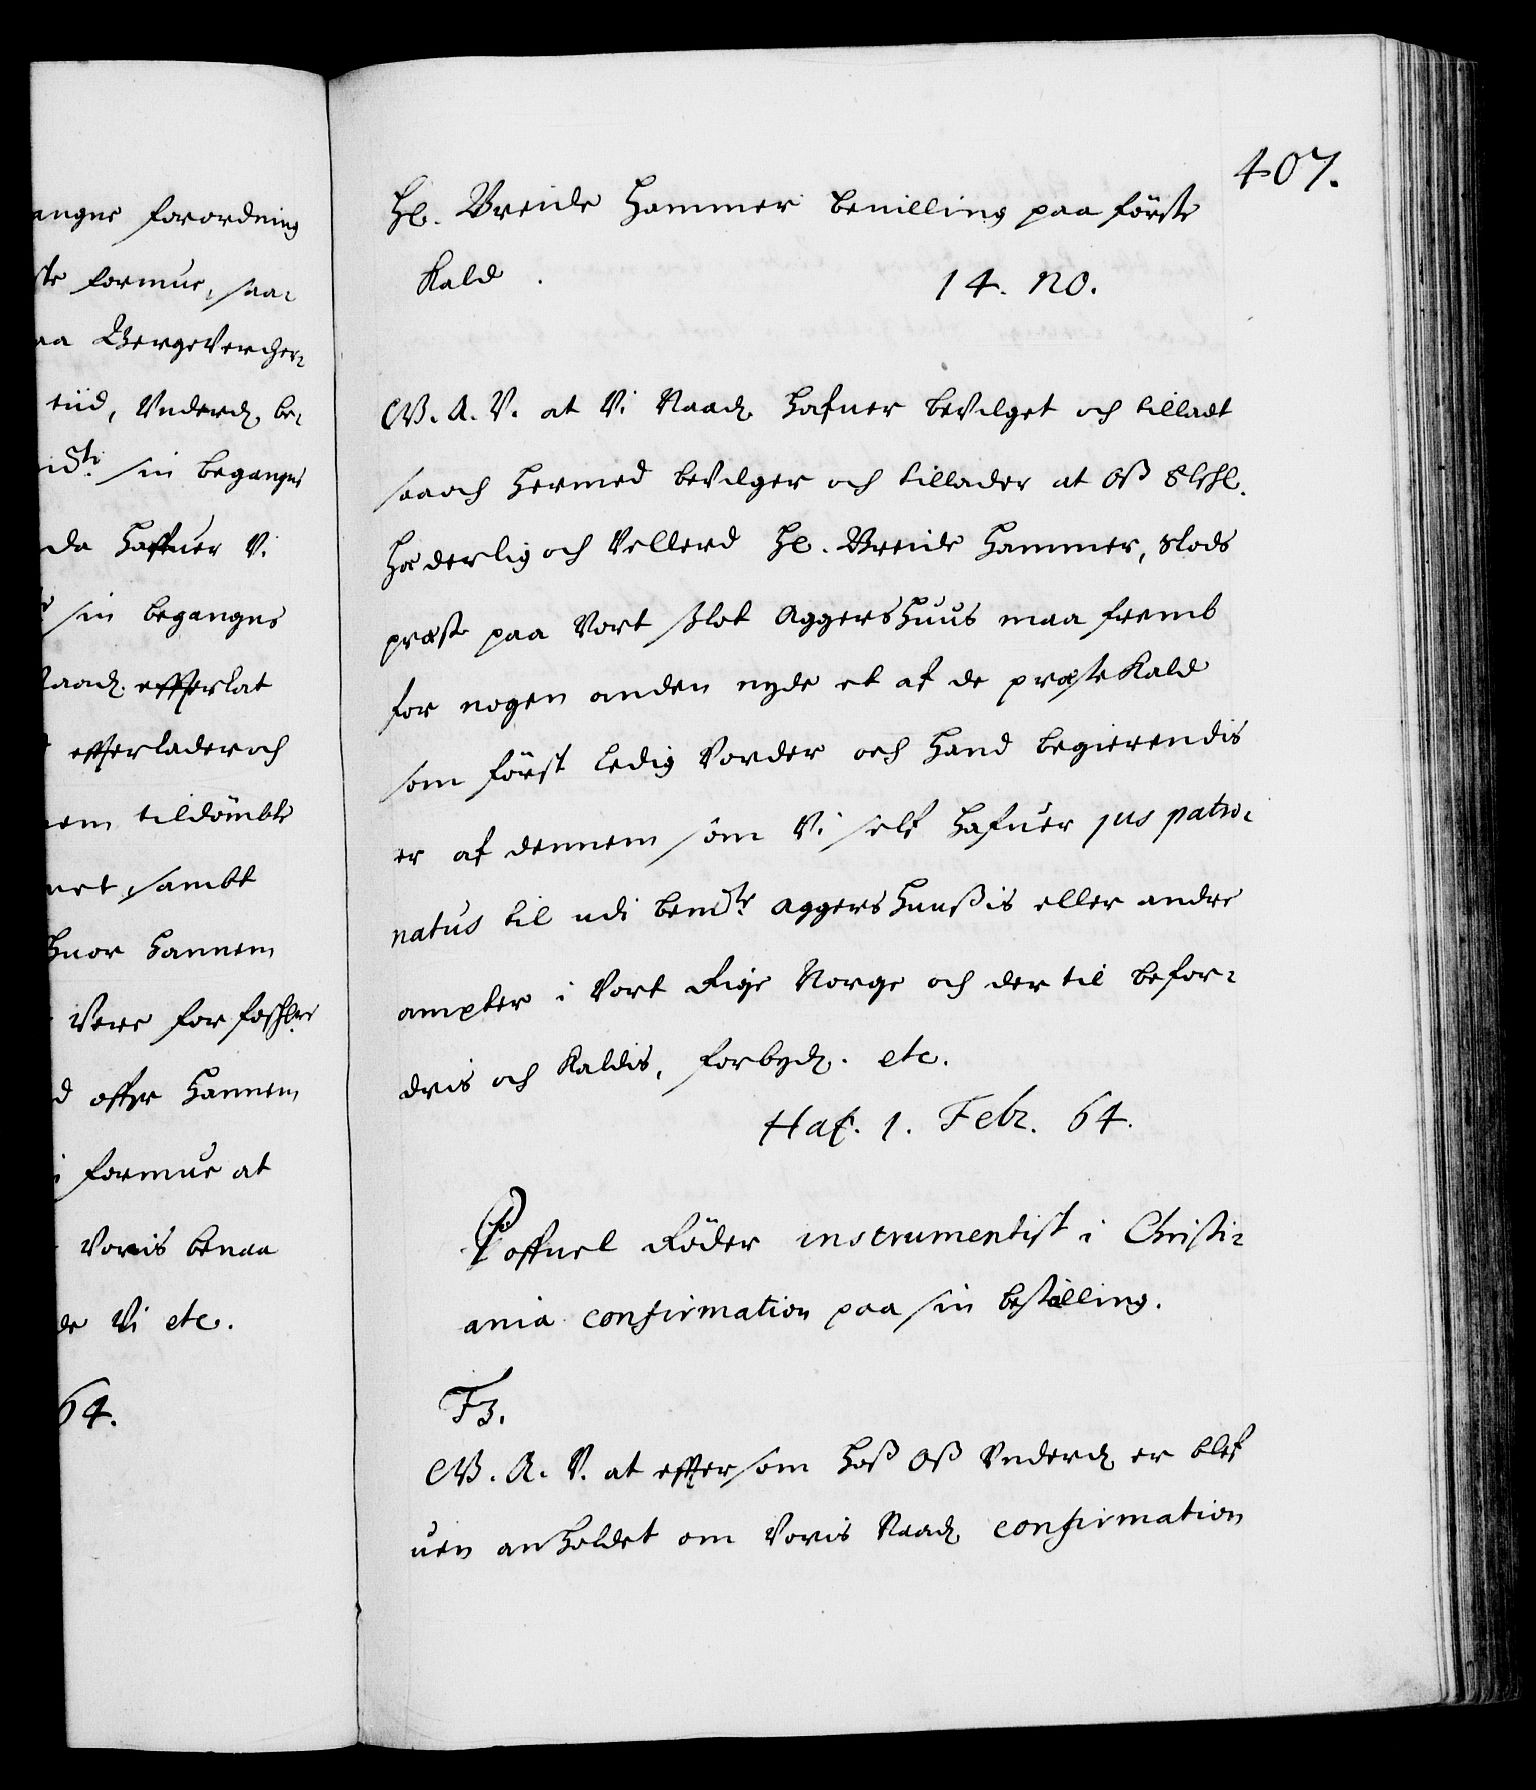 angne forordning
ste formue, saa-
aa Bergevercher-
tiid, Underd. be-
sin begangne
da haffuer Vi
sin begangne
Naad. effterlat
effterlader och
nem tildömbte
net, sambt
huor hannem
Vere forfoshl.
d effter hannem
i formue at
Voris benaa
de Vi etc.
64.
407.
Hr. Breide Hammer beuilling paa förste
Kald.
14. no.
C V. G. A. V. at Vi Naad. hafuer beVilget och tilladt
saa och hermed beVilger och tillader at Oß Elshl.
Hæderlig och Vellerd Hr. Breide Hammer, Slods
præst paa Vort Slot AggersHuus maa fremb
for nogen anden nyde et af de præste Kald
som först ledig Vorder och hand begierendis
er af dennem som Vi self hafuer jus patro-
natus til udi bemte AggersHuußis eller andre
ampter i Vort Rige Norge och der til befor-
dris och Kaldis, forbyd. etc.
Haf. 1. Febr. 64.
Poffuel Röder instrumentist i Christi-
ania confirmation paa sin bestalling.
F3.
C V. G. A. V. at effter som hoß Oß Underd er blef
uen anholdet om Voris Naad confirmation